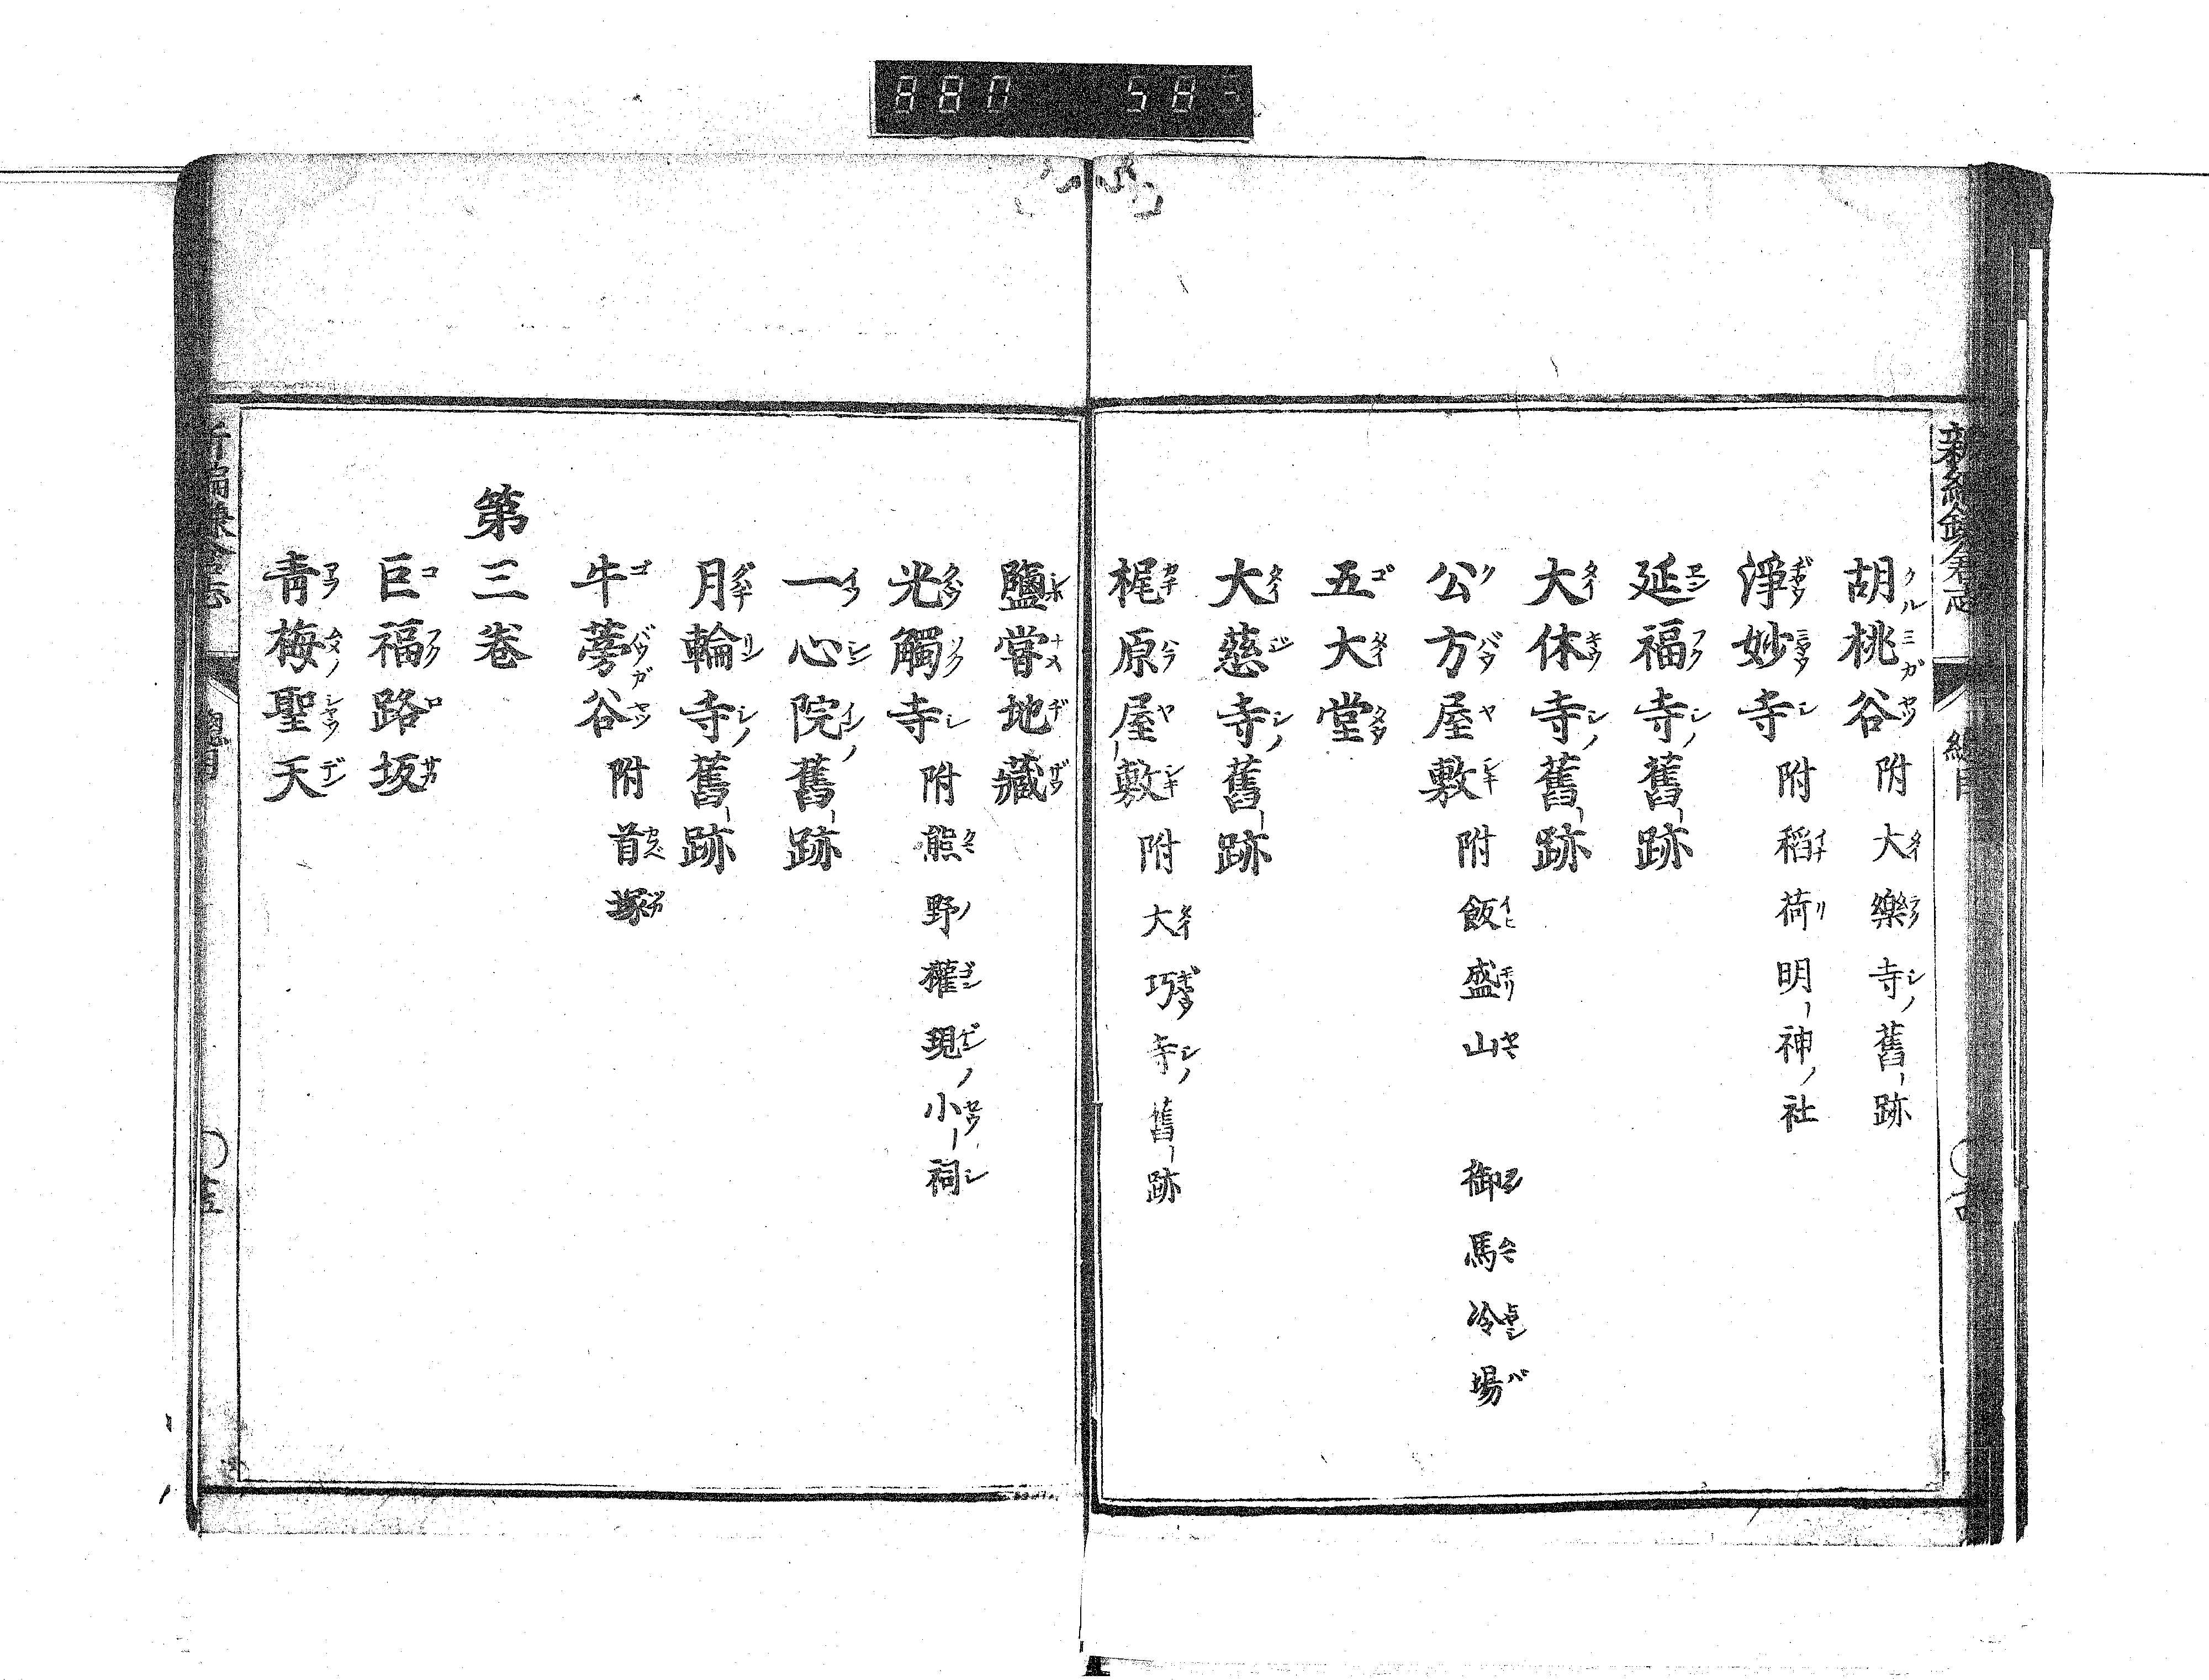 新編鎌倉志 總目
胡桃谷 附大樂寺ノ舊跡
淨妙寺 附稻荷明神ノ社
延福寺ノ舊跡
大休寺ノ舊跡
公方屋敷 附飯盛山 御馬冷場
五大堂
大慈寺ノ舊跡
梶原屋敷 附大巧寺ノ舊跡
鹽嘗地藏
光觸寺 附熊野權現ノ小祠
一心院ノ舊跡
月輪寺ノ舊跡
牛蒡谷 附首塚
第三卷
巨福路坂
青梅聖天
新編鎌倉志 總目